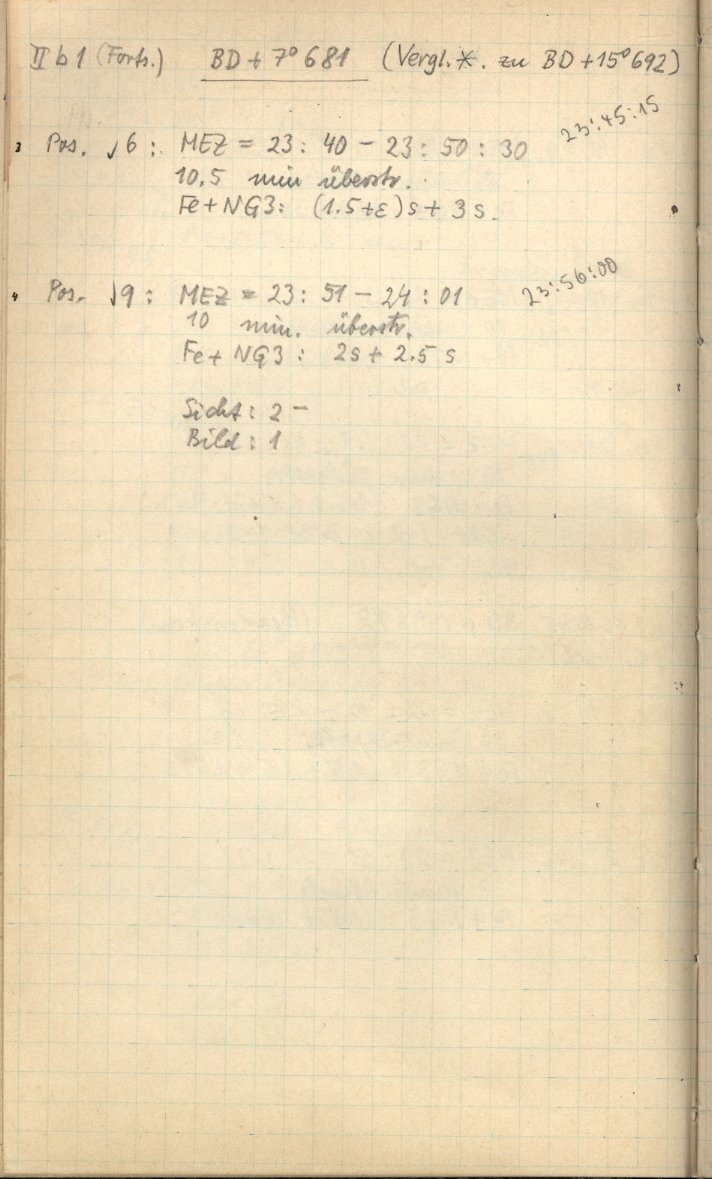 II b 1 (Forts.) BD + 7° 681 (Vergl. *. zu BD + 15° 692)
3 Pos. √6 : MEZ = 23 : 40 - 23 : 50 : 30 23:45:15
10.5 min überstr.
Fe + NG3 : (1.5+ε)s + 3 s.
4 Pos. √9 : MEZ = 23 : 51 - 24 : 01 23:56:00
10 min. überstr.
Fe + NG3 : 2s + 2.5 s
Sicht : 2 -
Bild : 1